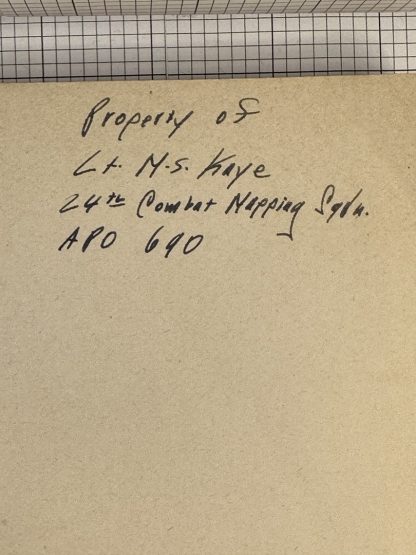 Property of
Lt. M.S. Kaye
24th Combat Mapping Sqdn.
APO 690